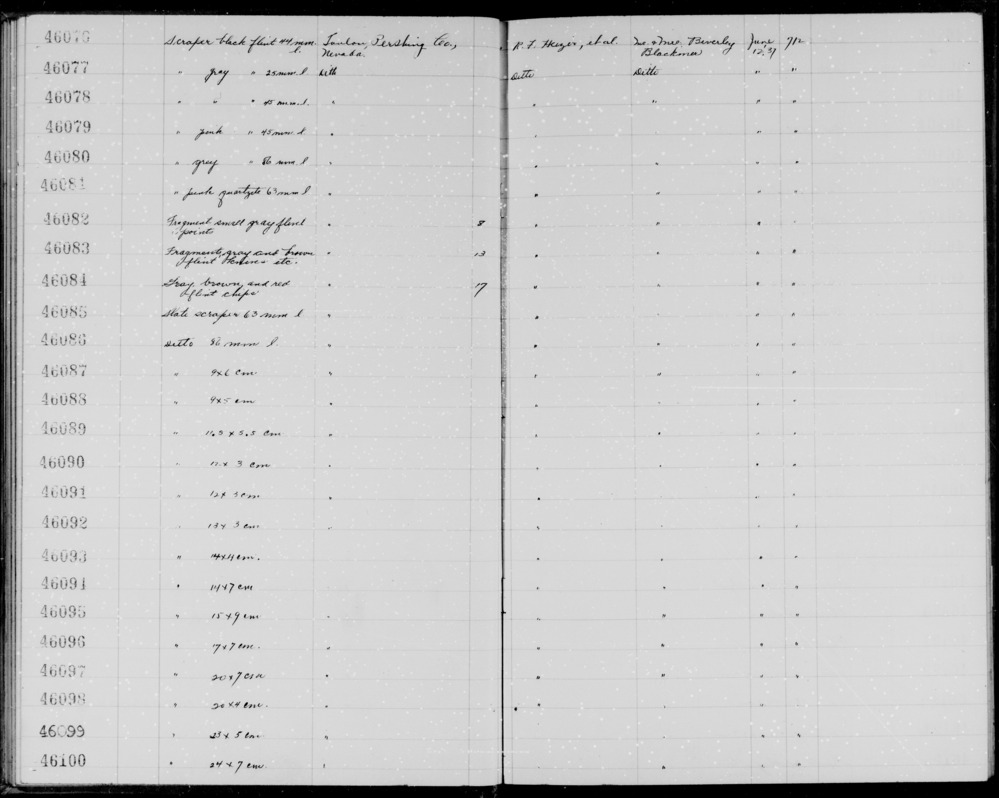 46076 Scraper black flint 44 mm. l. Pershing Co., Nevada. R. F. Heizer, et al. Beverly Blackmer June 12, 37 712
46077 " gray " 25 mm. l Ditto Ditto Ditto " "
46078 " " " 45 mm. l. " " " " "
46079 " pink " 45 mm. l " " " "
46080 " gray " 86 mm. l " " " " "
46081 " pink quartzite 63 mm l " " " " "
46082 Fragment small gray flint points " 8 " " "
46083 Fragments, gray and brown flint knives etc. " 13 " " " "
46084 Gray, brown, and red flint chips " 17 " " " "
46085 Slate scraper 63 mm l " " " "
46086 Ditto 86 mm l. " " " " "
46087 " 9x6 cm " " " " "
46088 " 9x5 cm " " " " "
46089 " 11.5 x 5.5 cm " " " " "
46090 " 12 x 3 cm " " " " "
46091 " 12x 5 cm " " " "
46092 " 13x 5 cm " " " " "
46093 " 14x4 cm. " " "
46094 " 14x7 cm " " " "
46095 " 15x9 cm " " " " "
46096 " 17x7 cm. " " " " "
46097 " 20x7 cm " " " " "
46098 " 20x4 cm. " " " "
46099 " 23x 5 cm " " "
46100 " 24x7 cm. " " " "